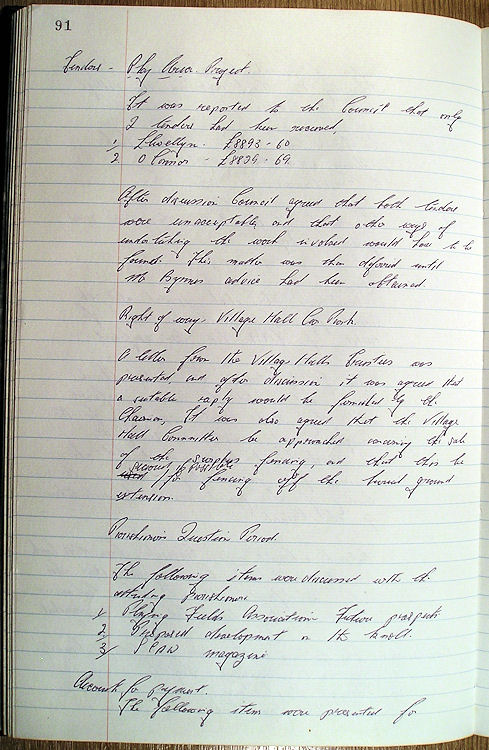 91
Tenders - Play Area Project.
It was reported to the Council that only
2 tenders had been received,
1, Llewellyn. £8893 - 60
2 O Connor - £8839 - 69.
After discussion Council agreed that both tenders
were unacceptable, and that other ways of
undertaking the work involved would have to be
found. This matter was then deferred until
Mr Byrnes advice had been obtained
Right of way. Village Hall Car Park.
A letter from the Village Halls Trustees was
presented, and after discussion it was agreed that
a suitable reply would be furnished by the
Chairman, It was also agreed that the Village
Hall Committee be approached concerning the sale
of the surplus fencing, and that this be
procured, if possible
used for fencing off the burial ground
extension.
Parishioners Question Period
The following items were discussed with the
attending Parishioners
1, Playing Fields Association Future prospects
2, Proposed development in the Knoll.
3, magazine
Accounts for payment.
The following item were presented for